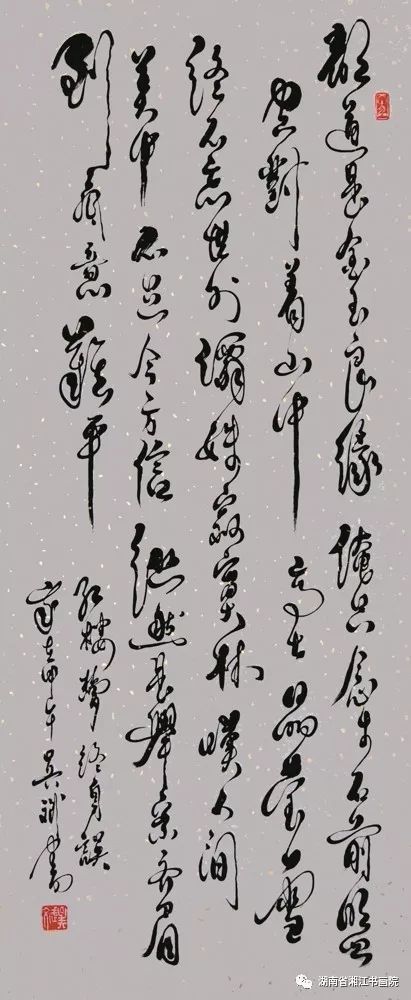 都道是金玉良緣俺只念木石前盟
空對着山中高士晶莹雪
终不忘世外僊姝寂寞林嘆人间
美中不足今方信縱然是舉案齐眉
到底意難平
红楼夢终身誤
岁在甲午吴斌书
湖南省湘江书画院